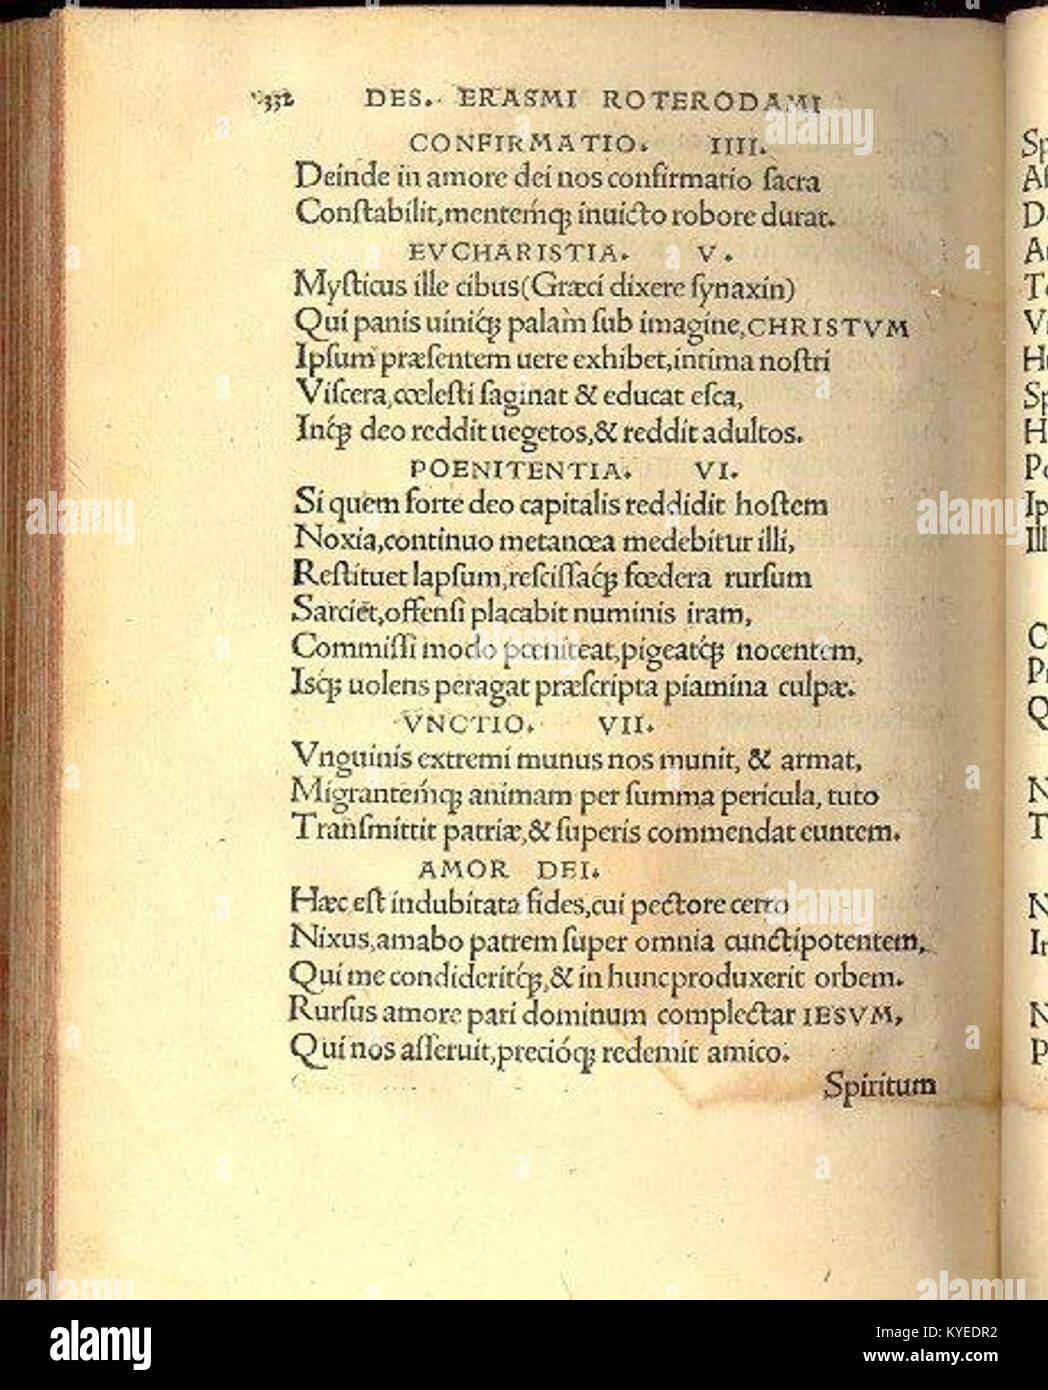 332 DES. ERASMI ROTERODAMI
CONFIRMATIO. IIII.
Deinde in amore dei nos confirmatio ſacra
Conſtabilit, mentemq́; inuicto robore durat.
EVCHARISTIA. V.
Myſticus ille cibus (Græci dixere ſynaxin)
Qui panis uiniq́; palàm ſub imagine, CHRISTVM
Ipſum præſentem uere exhibet, intima noſtri
Viſcera, cœleſti ſaginat & educat eſca,
Inq́; deo reddit uegetos, & reddit adultos.
POENITENTIA. VI.
Si quem forte deo capitalis reddidit hoſtem
Noxia, continuo metanœa medebitur illi,
Reſtituet lapſum, reſciſſaq́; fœdera rurſum
Sarciet, offenſi placabit numinis iram,
Commiſſi modo pœniteat, pigeatq́; nocentem,
Isq́; uolens peragat præſcripta piamina culpæ.
VNCTIO. VII.
Vnguinis extremi munus nos munit, & armat,
Migrantemq́; animam per ſumma pericula, tuto
Tranſmittit patriæ, & ſuperis commendat euntem.
AMOR DEI.
Hæc eſt indubitata fides, cui pectore certo
Nixus, amabo patrem ſuper omnia cunctipotentem,
Qui me condideritq́;, & in hunc produxerit orbem.
Rurſus amore pari dominum complectar IESVM,
Qui nos aſſeruit, precióq; redemit amico.
Spiritum
alamy
Image ID: KYEDR2
www.alamy.com